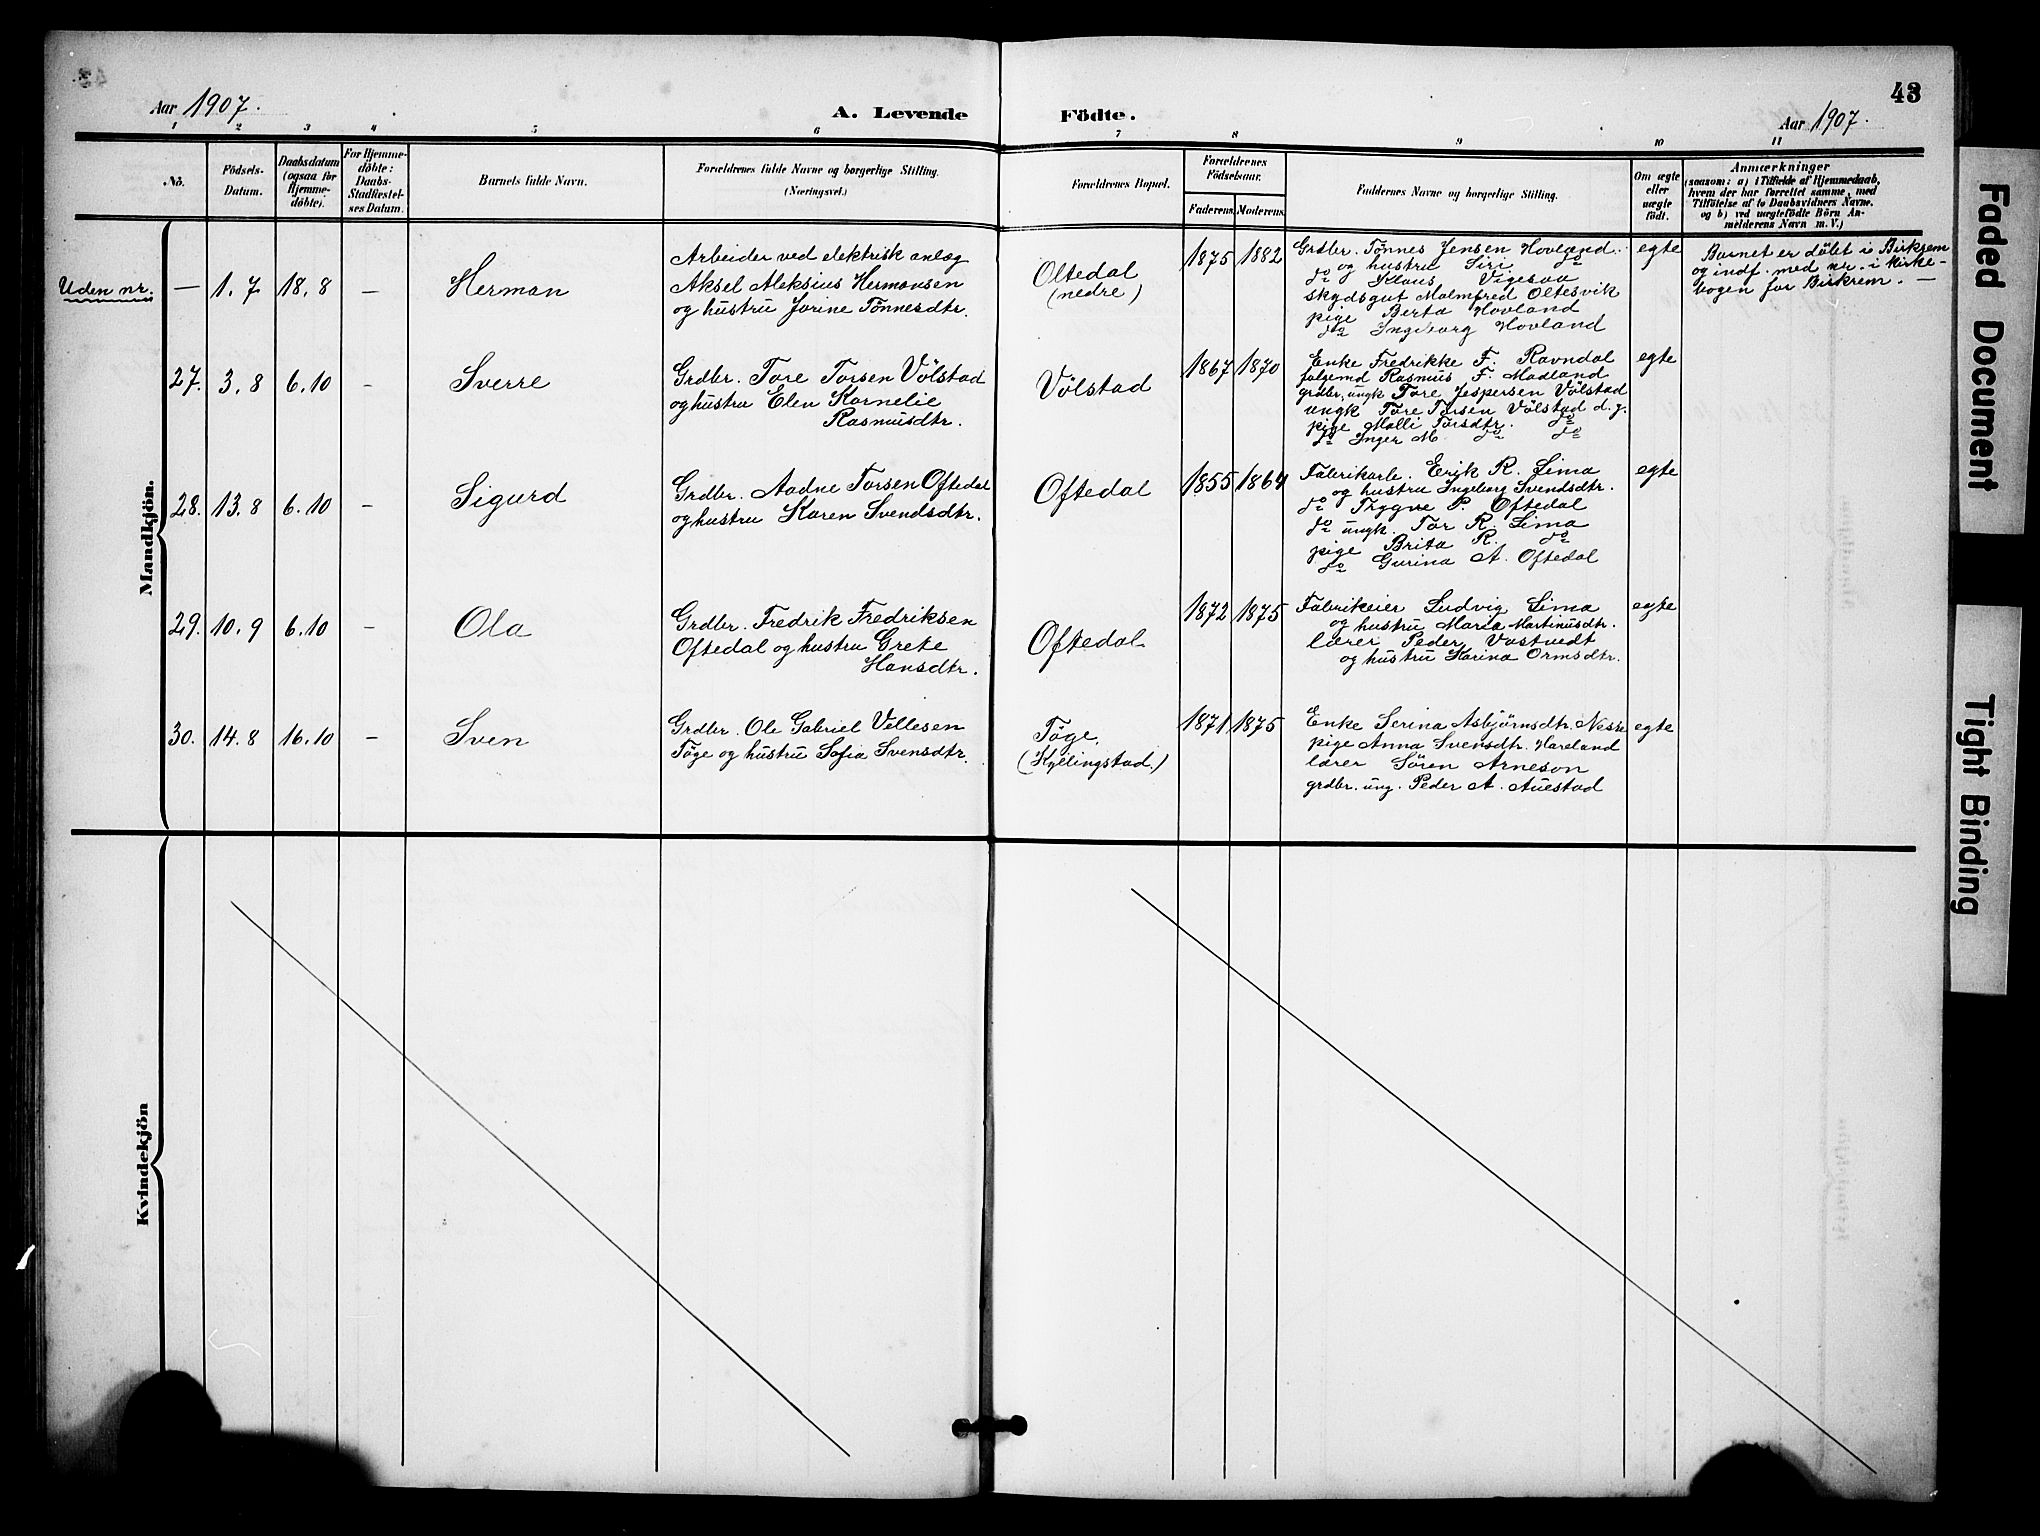 Aar 1907.
A. Levende Födte.
43
Aar 1907.
1 2 3 4 5 6 7 8 9 10 11
No.
Födsels-
Datum.
Daabsdatum
(ogsaa for
Hjemme-
döbte).
For Hjemme-
döbte:
Daabs-
Stadfæstel-
ses Datum.
Barnets fulde Navn.
Forældrenes fulde Navne og borgerlige Stilling.
(Næringsvei.)
Forældrenes Bopæl.
Forældrenes
Födselsaar.
Faderens. Moderens.
Faddernes Navne og borgerlige Stilling.
Om ægte
eller
uægte
födt.
Anmærkninger
(saasom: a) i Tilfælde af Hjemmedaab,
hvem der har forrettet samme, med
Tilföielse af to Daabsvidners Navne.
og b) ved uægtefödte Börn An-
melderens Navn m. V.)
Mandkjön.
Uden nr. — 1. 7 18. 8 — Herman
Arbeider ved elektrisk anlæg
Aksel Aleksius Hermansen
og hustru Jorine Tönnesdtr.
Oltedal
(nedre)
1875 1882
Grdbr. Tönnes Jensen Hovland
og hustru Siri do
do Klaus Vigesaa
skydsgut Malmfred Oltesvik
pige Berta Hovland
do Ingeborg Hovland
egte
Barnet er döbt i Birkrem
og indf. med nr. i kirke-
bogen for Birkrem. —
27. 3. 8 6. 10 — Sverre
Grdbr. Tore Torsen Völstad
og hustru Elen Kornelie
Rasmusdtr.
Völstad
1867 1870
Enke Fredrikke F. Ravndal
folgemd Rasmus F. Madland
grdbr. ungk Tore Jespersen Völstad
ungk Tore Torsen Völstad d. y.
pige Malli Torsdtr. do
do Inger M. do do
egte
28. 13. 8 6. 10 — Sigurd
Grdbr. Aadne Torsen Oftedal
og hustru Karen Svendsdtr.
Oftedal
1855 1864
Fabrikarb. Erik R. Lima
og hustru Ingeborg Svendsdtr.
do Trygve P. Oftedal
do ungk. Tor R. Lima
pige Brita R. do
do Gurina A. Oftedal
egte
29. 10. 9 6. 10 — Ola
Grdbr. Fredrik Fredriksen
Oftedal og hustru Grete
Hansdtr.
Oftedal
1872 1875
Fabrikeier Ludvig Lima
og hustru Maria Martinusdtr.
lærer Peder Vastvedt
og hustru Karina Ormsdtr.
egte
30. 14. 8 16. 10 — Sven
Grdbr. Ole Gabriel Vellesen
Töge og hustru Sofia Svensdtr.
Töge
(Kyllingstad.)
1871 1875
Enke Serina Asbjörnsdtr. Nesse
pige Anna Svensdtr. Hareland
lærer Sören Arneson
grdbr. ung. Peder A. Auestad
egte
Kvindekjön
Faded Document
Tight Binding